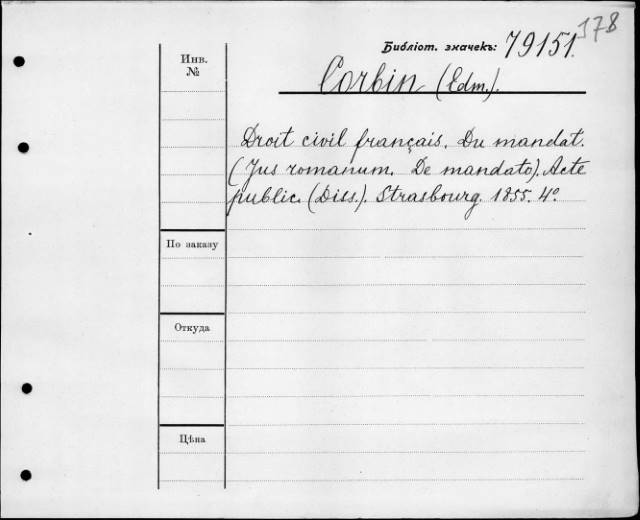 178
Библіот. значекъ: 79151.
Инв.
№
Corbin (Edm.).
Droit civil français. Du mandat.
(Jus romanum. De mandato). Acte
public. (Diss.). Strasbourg. 1855. 4°.
По заказу
Откуда
Цѣна